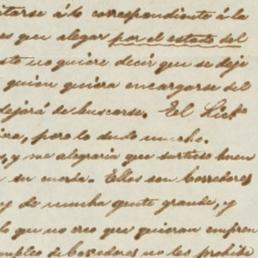 itarse á lo correspondiente á la
es que alegar por el estado del
sto no quiere decir que se deje
quien quiera encargarse del
dejará de buscarse. El Licdo
pero lo dudo mucho.
y me alegraria que surtiese buen
su moda. Ellos son Corredores
y de mucha gente grande, y
lo que no creo que quieran empren
empleo de Corredores no les prohibe